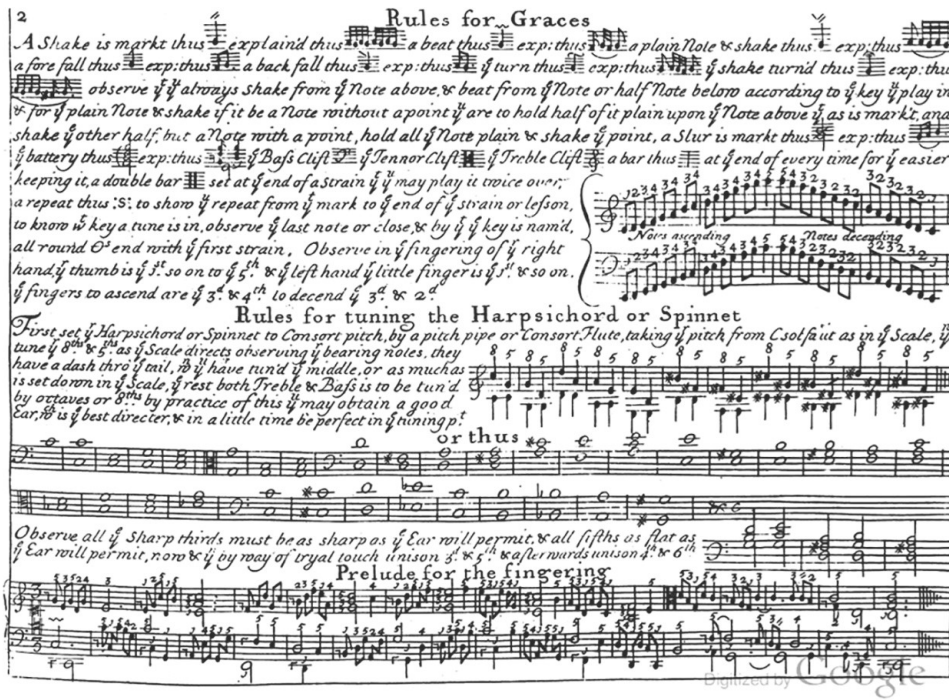 2
Rules for Graces
A Shake is markt thus explain'd thus a beat thus exp: thus a plain Note & shake thus exp: thus
a fore fall thus exp: thus a back fall thus exp: thus yͤ turn thus exp: thus yͤ shake turn'd thus exp: thus
observe yͭ yͧ always shake from yͤ Note above, & beat from yͤ Note or half Note below according to yͤ key yͧ play in
& for yͤ plain Note & shake if it be a Note without a point yͧ are to hold half of it plain upon yͤ Note above yͭ as is markt, and
shake yͤ other half, but a Note with a point, hold all yͤ Note plain & shake yͤ point, a Slur is markt thus exp: thus
yͤ battery thus exp: thus yͤ Baſs Cliff yͤ Tennor Cliff yͤ Treble Cliff a bar thus at yͤ end of every time for yͤ easier
keeping it, a double bar set at yͤ end of a Strain yͭ yͧ may play it twice over,
a repeat thus :S: to show yͤ repeat from yͭ mark to yͤ end of yͤ strain or leſson,
to know wͭ key a tune is in, observe yͤ last note or close, & by yͭ yͤ key is nam'd,
all round Oˢ end with yͤ first strain. Observe in yͤ fingering of yͬ right
hand, yͬ thumb is yͤ 1ˢᵗ so on to yͤ 5ᵗʰ & yͤ left hand yͤ little finger is yͤ 1ˢᵗ & so on.
yͤ fingers to ascend are yͤ 3ᵈ & 4ᵗʰ to decend yͤ 3ᵈ & 2ᵈ
Notes ascending Notes decending
Rules for tuning the Harpsichord or Spinnet
First set yͬ Harpsichord or Spinnet to Consort pitch, by a pitch pipe or Consort Flute, taking yͤ pitch from C sol fa ut as in yͤ Scale,
tune yͤ 8ᵗʰˢ & 5ᵗʰˢ as yͤ Scale directs observing yͤ bearing notes, they
have a dash thro yͤ tail, wⁿ yͧ have tun'd yͤ middle, or as much as
is set down in yͤ Scale, yͤ rest both Treble & Baſs is to be tun'd
by octaves or 8ᵗʰˢ by practice of this yͧ may obtain a good
Ear, wᶜʰ is yͤ best directer, & in a little time be perfect in yͤ tuning pᵗ
or thus
Observe all yͤ Sharp thirds must be as sharp as yͤ Ear will permit, & all fifths as flat as
yͤ Ear will permit, now & yⁿ by way of tryal touch unison 3ᵈ & 5ᵗʰ & afterwards unison 4ᵗʰ & 6ᵗʰ
Prelude for the fingering
Digitized by Google